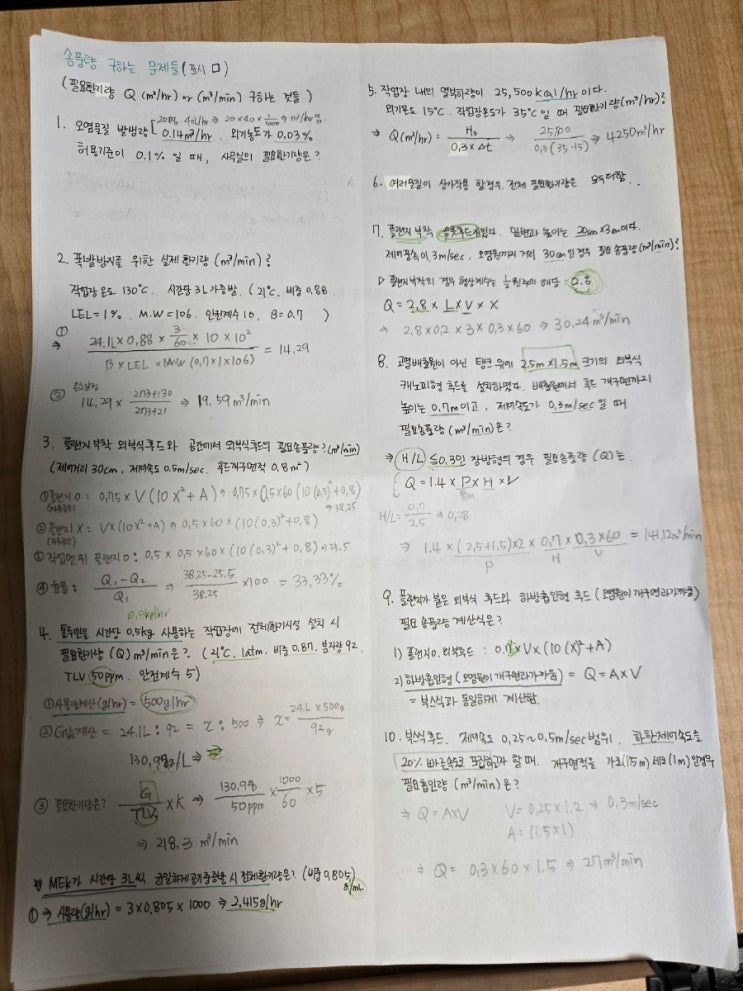 송풍량 구하는 문제들 (표시 □)
(필요환기량 Q (m³/hr) or (m³/min) 구하는 것들)
1. 오염물질 발생량 0.14m³/hr. 외기농도가 0.03%
허용기준이 0.1% 일 때, 사무실의 필요환기량은?
2. 폭발방지를 위한 실제 환기량 (m³/min)?
작업장 온도 130℃. 시간당 3L 가 증발. (21℃, 비중 0.88
LEL = 1%. M.W = 106. 안전계수 10. B = 0.7 )
①
⇒ 24.1L × 0.88 × 3/60 × 10 × 10² / B × LEL × M.W (0.7 × 1 × 106) = 14.29
② 온도보정
14.29 × 273+130 / 273+21 ⇒ 19.59 m³/min
3. 플랜지 부착 외부식 후드와 공간에서 외부식후드의 필요송풍량? (m³/min)
(제어거리 30cm, 제어속도 0.5m/sec. 후드개구면적 0.8m²)
① 플랜지 O : 0.75 × V (10X² + A) ⇒ 0.75 × 0.5 × 60 (10(0.3)² + 0.8)
(자유공간) ⇒ 38.25
② 플랜지 X : V × (10X² + A) ⇒ 0.5 × 60 × (10(0.3)² + 0.8)
(자유공간)
③ 작업면 위 플랜지 O : 0.5 × 0.5 × 60 × (10(0.3)² + 0.8) ⇒ 25.5
④ 효율 : Q₁ - Q₂ / Q₁ ⇒ 38.25 - 25.5 / 38.25 × 100 = 33.33%
4. 톨루엔을 시간당 0.5kg 사용하는 작업장에 전체환기시설 설치 시
필요환기량 (Q) m³/min 은? (21℃, 1atm. 비중 0.87. 분자량 92.
TLV 50ppm. 안전계수 5)
① 사용량계산 (g/hr) = 500g/hr
② G값계산 = 24.1L : 92 = x : 500 ⇒ x = 24.1L × 500g / 92g
③ 필요환기량은? G / TLV × K ⇒ 130.98 / 50ppm × 1000 / 60 × 5
⇒ 218.3 m³/min
MEK가 시간당 3L씩 균일하게 공기중증발 시 전체환기량은? (비중 0.805)
g/mL
① ⇒ 사용량(g/hr) = 3 × 0.805 × 1000 ⇒ 2,415g/hr
5. 작업장 내의 열부하량이 25,500 kcal/hr 이다.
외기온도 15℃. 작업장온도가 35℃ 일 때 필요환기량(m³/hr)?
⇒ Q(m³/hr) = Hs / 0.3 × Δt ⇒ 25,500 / 0.3(35-15) ⇒ 4250m³/hr
6. 여러물질이 상가작용 할경우. 전체 필요환기량은 모두더함.
7. 플랜지 부착 슬롯후드가있다. 밑변과 높이는 20cm × 3cm이다.
제어풍속이 3m/sec, 오염원까지 거리 30cm 인 경우 필요송풍량 (m³/min)?
▷ 플랜지부착의 경우 형상계수는 ½원주에 해당 : 2.8
Q = 2.8 × L × V × X
⇒ 2.8 × 0.2 × 3 × 0.3 × 60 ⇒ 30.24 m³/min
8. 고열배출원이 아닌 탱크 위에 2.5m × 1.5m 크기의 외부식
캐노피형 후드를 설치하였다. 배출원에서 후드 개구면까지
높이는 0.7m이고, 제어속도가 0.3m/sec 일 때
필요송풍량 (m³/min)은?
⇒ H/L ≤ 0.3인 장방형의 경우 필요송풍량 (Q)는.
Q = 1.4 × P × H × V
둘레
H/L = 0.7 / 2.5 ⇒ 0.28
⇒ 1.4 × (2.5+1.5)×2 × 0.7 × 0.3×60 = 141.12m³/min
P H V
9. 플랜지가 붙은 외부식 후드와 하방흡인형 후드 (오염원이 개구면에가까움)
필요 송풍량 계산식은?
1) 플랜지O. 외부식후드 : 0.75 × V × (10(X)² + A)
2) 하방흡인형 (오염원이 개구면과가까움) = Q = A × V
= 부스식과 동일하게 계산함.
10. 부스식후드. 제어속도 0.25 ~ 0.5m/sec 범위. 하한제어속도를
20% 빠른속도로 포집하고자 할 때. 개구면적을 가로(1.5m) 세로 (1m)인경우
필요흡인량 (m³/min)은?
⇒ Q = A × V V = 0.25 × 1.2 ⇒ 0.3m/sec
A = (1.5 × 1)
⇒ Q = 0.3 × 60 × 1.5 ⇒ 27m³/min